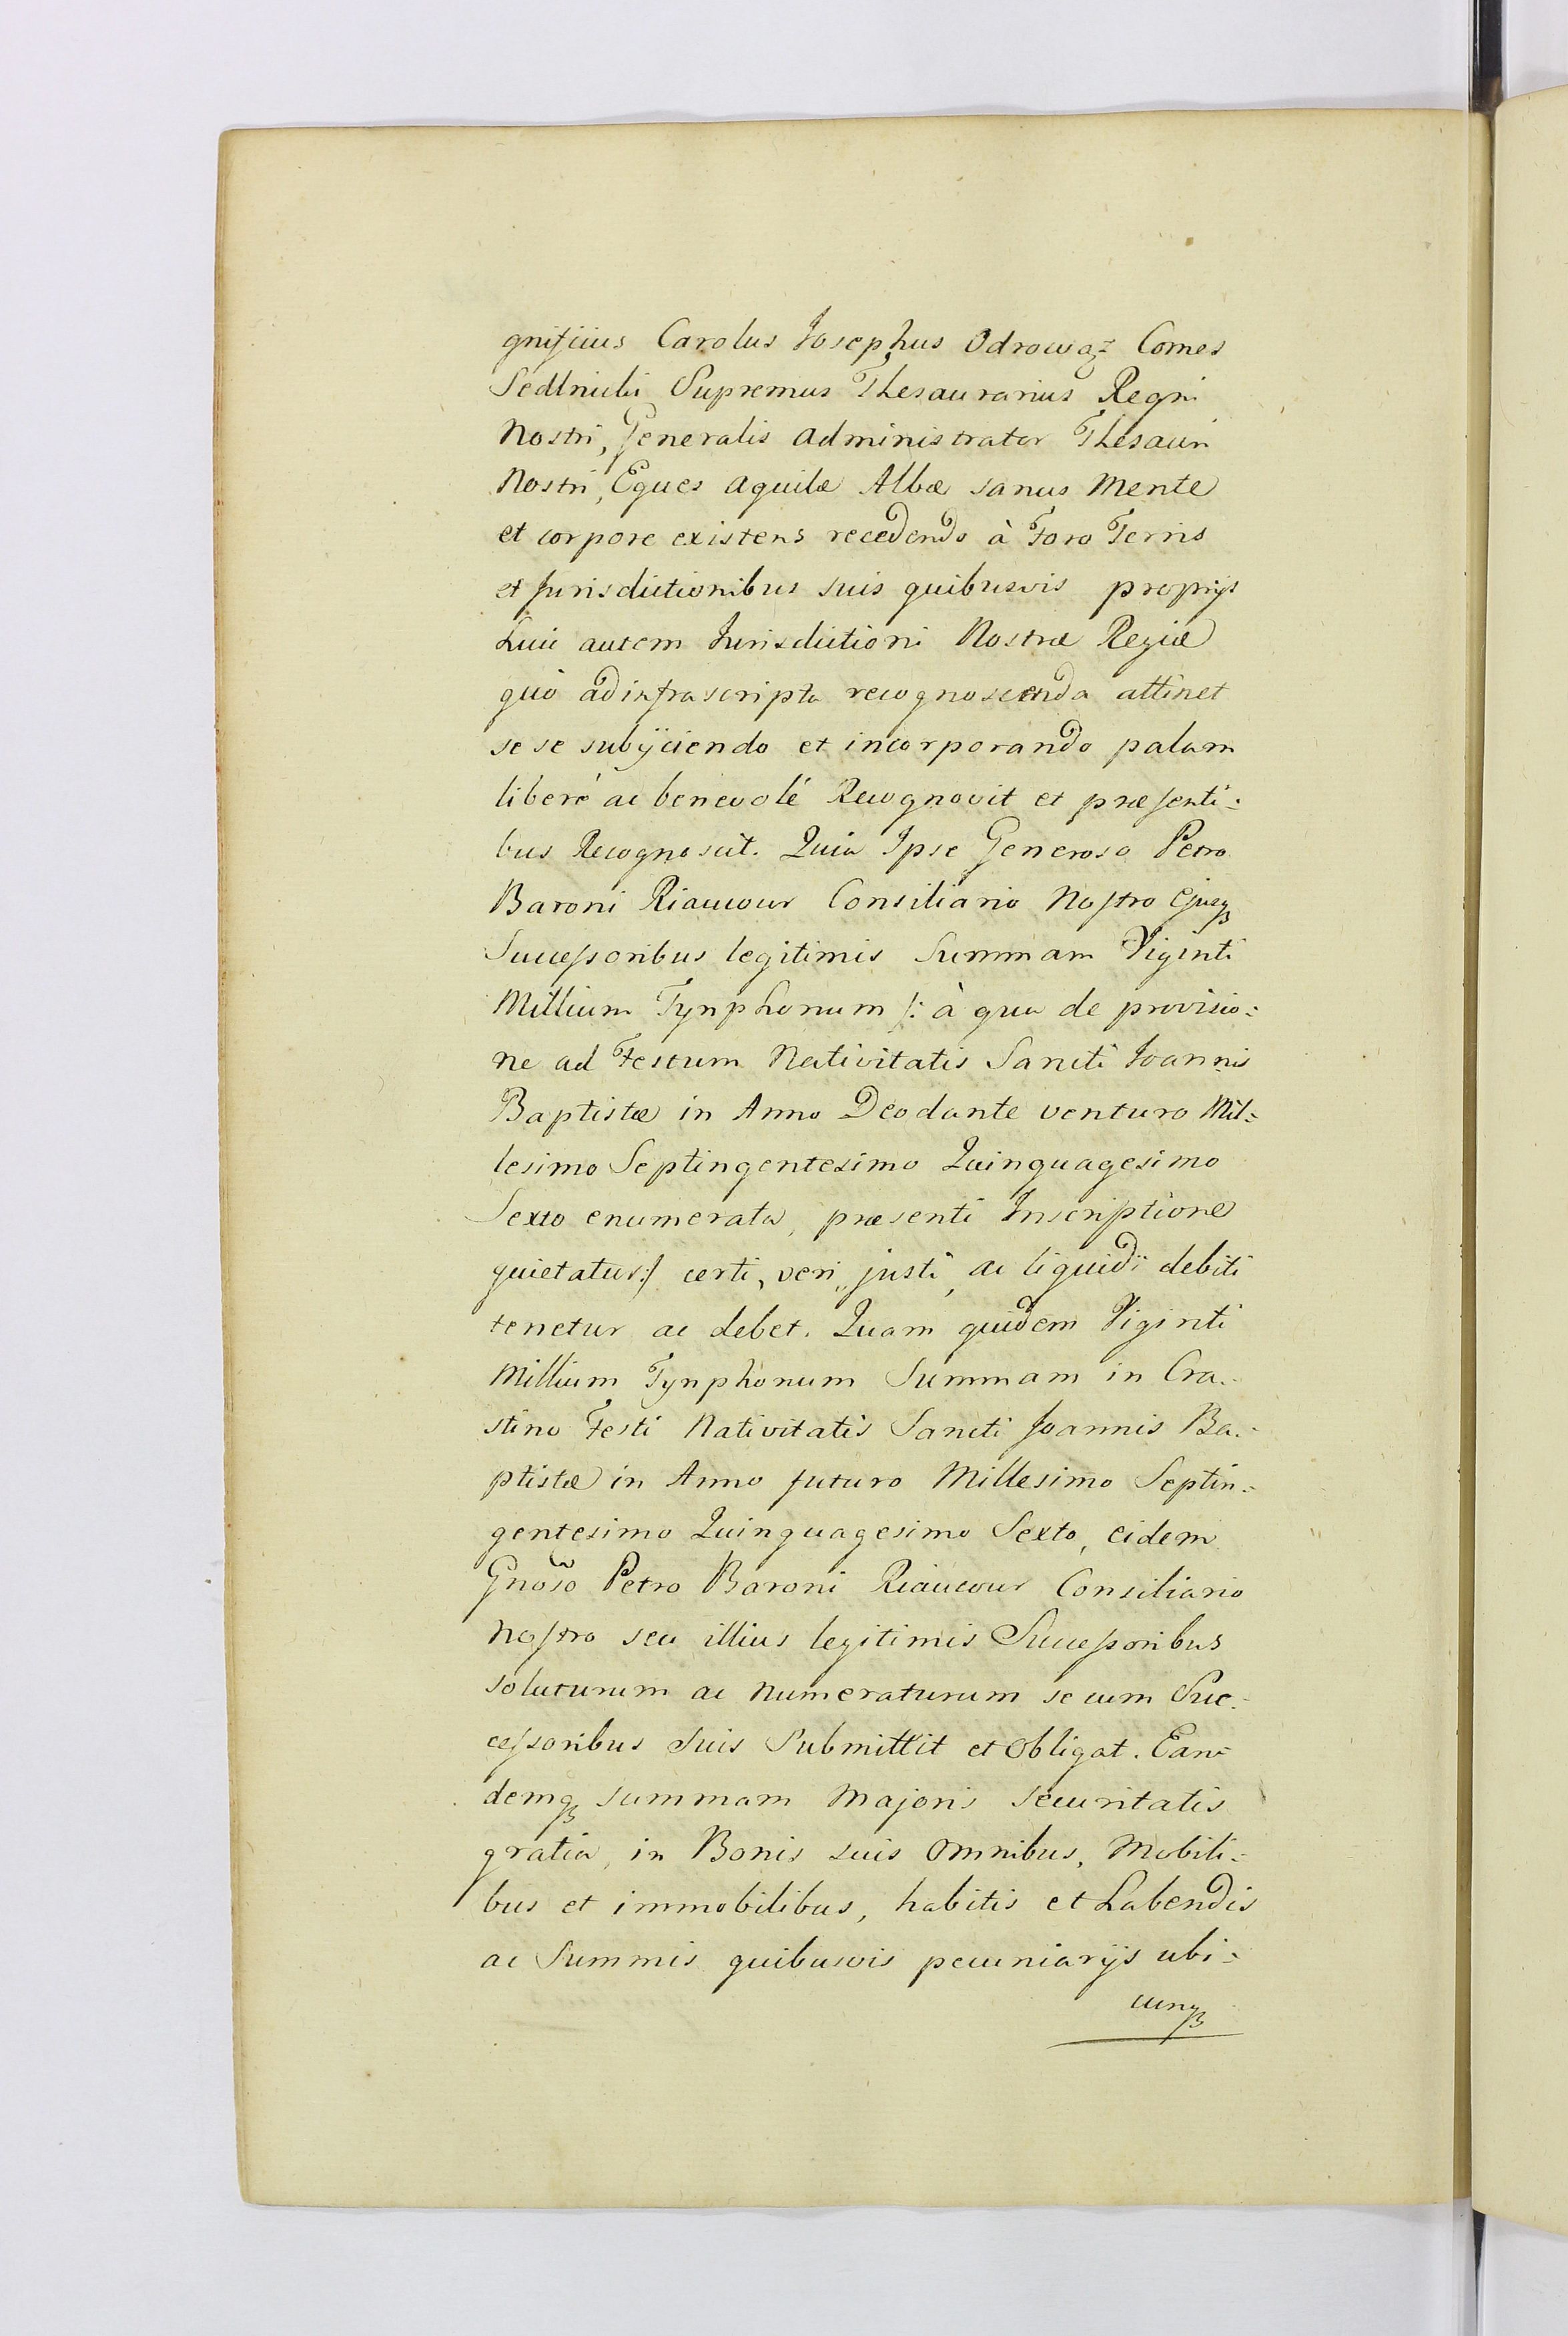 gnificus Carolus Josephus Odrowąz Comes
Sedlnicki Supremus Thesaurarius Regni
Nostri, Generalis Administrator Thesauri
Nostri, Eques Aquilæ Albæ sanus Mente
et corpore existens recedendo à Foro Terris
et Jurisdictionibus suis quibusvis proprijs
huic autem Jurisdictioni Nostræ Regiæ
quò ad infrascripta recognoscenda attinet
se se subijciendo et incorporando palam
liberé ac benevolé Recognovit et præsenti-
bus Recognoscit. Quia Ipse Generoso Petro
Baroni Riaucour Consiliario Nostro Ejusqꝫ
Successoribus legitimis Summam Viginti
Millium Tynphonum /: à qua de provisio-
ne ad Festum Nativitatis Sancti Joannis
Baptistæ in Anno Deo dante venturo Mil-
lesimo Septingentesimo Quinquagesimo
Sexto enumerata, præsenti Inscriptione
quietatur :/ certi, veri, justi, ac liquidi debiti
tenetur ac debet. Quam quidem Viginti
Millium Tynphonum Summam in Cra-
stino Festi Nativitatis Sancti Joannis Ba-
ptistæ in Anno futuro Millesimo Septin-
gentesimo Quinquagesimo Sexto, eidem
Gnoso Petro Baroni Riaucour Consiliario
Nostro seu illius legitimis Successoribus
soluturum ac Numeraturum se cum Suc-
cessoribus Suis Submittit et Obligat. Ean-
demqꝫ summam Majoris securitatis
gratia, in Bonis suis Omnibus, Mobili-
bus et immobilibus, habitis et habendis
ac Summis quibusvis pecuniarijs ubi-
cunqꝫ